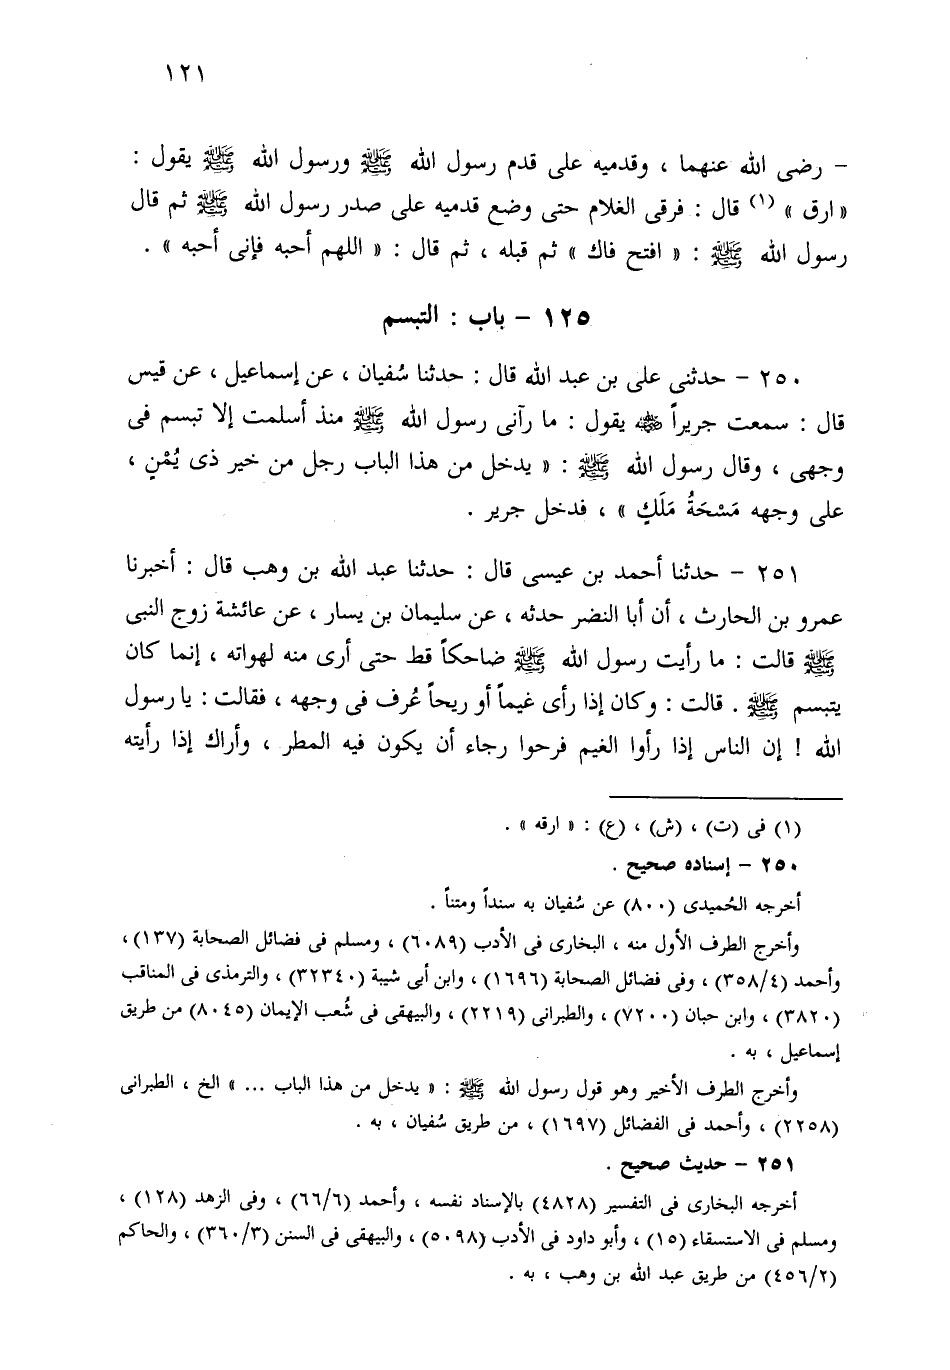 ١٢١
– رضى الله عنهما ، وقدميه على قدم رسول الله ﷺ ورسول الله ﷺ يقول :
« ارق » (١) قال : فرقى الغلام حتى وضع قدميه على صدر رسول الله ﷺ ثم قال
رسول الله ﷺ : « افتح فاك » ثم قبله ، ثم قال : « اللهم أحبه فإنى أحبه » .
١٢٥ – باب : التبسم
٢٥٠ – حدثنى على بن عبد الله قال : حدثنا سُفيان ، عن إسماعيل ، عن قيس
قال : سمعت جريراً رضي الله عنه يقول : ما رآنى رسول الله ﷺ منذ أسلمت إلا تبسم فى
وجهى ، وقال رسول الله ﷺ : « يدخل من هذا الباب رجل من خير ذى يُمْنٍ ،
على وجهه مَسْحَةُ مَلَكٍ » ، فدخل جرير .
٢٥١ – حدثنا أحمد بن عيسى قال : حدثنا عبد الله بن وهب قال : أخبرنا
عمرو بن الحارث ، أن أبا النضر حدثه ، عن سليمان بن يسار ، عن عائشة زوج النبى
ﷺ قالت : ما رأيت رسول الله ﷺ ضاحكاً قط حتى أرى منه لهواته ، إنما كان
يتبسم ﷺ . قالت : وكان إذا رأى غيماً أو ريحاً عُرف فى وجهه ، فقالت : يا رسول
الله ! إن الناس إذا رأوا الغيم فرحوا رجاء أن يكون فيه المطر ، وأراك إذا رأيته
(١) فى (ت) ، (ش) ، (ع) : « ارقه » .
٢٥٠ – إسناده صحيح .
أخرجه الحُميدى (٨٠٠) عن سُفيان به سنداً ومتناً .
وأخرج الطرف الأول منه ، البخارى فى الأدب (٦٠٨٩) ، ومسلم فى فضائل الصحابة (١٣٧) ،
وأحمد (٣٥٨/٤) ، وفى فضائل الصحابة (١٦٩٦) ، وابن أبى شيبة (٣٢٣٤٠) ، والترمذى فى المناقب
(٣٨٢٠) ، وابن حبان (٧٢٠٠) ، والطبرانى (٢٢١٩) ، والبيهقى فى شُعب الإيمان (٨٠٤٥) من طريق
إسماعيل ، به .
وأخرج الطرف الأخير وهو قول رسول الله ﷺ : « يدخل من هذا الباب ... » الخ ، الطبرانى
(٢٢٥٨) ، وأحمد فى الفضائل (١٦٩٧) ، من طريق سُفيان ، به .
٢٥١ – حديث صحيح .
أخرجه البخارى فى التفسير (٤٨٢٨) بالإسناد نفسه ، وأحمد (٦٦/٦) ، وفى الزهد (١٢٨) ،
ومسلم فى الاستسقاء (١٥) ، وأبو داود فى الأدب (٥٠٩٨) ، والبيهقى فى السنن (٣٦٠/٣) ، والحاكم
(٤٥٦/٢) من طريق عبد الله بن وهب ، به .